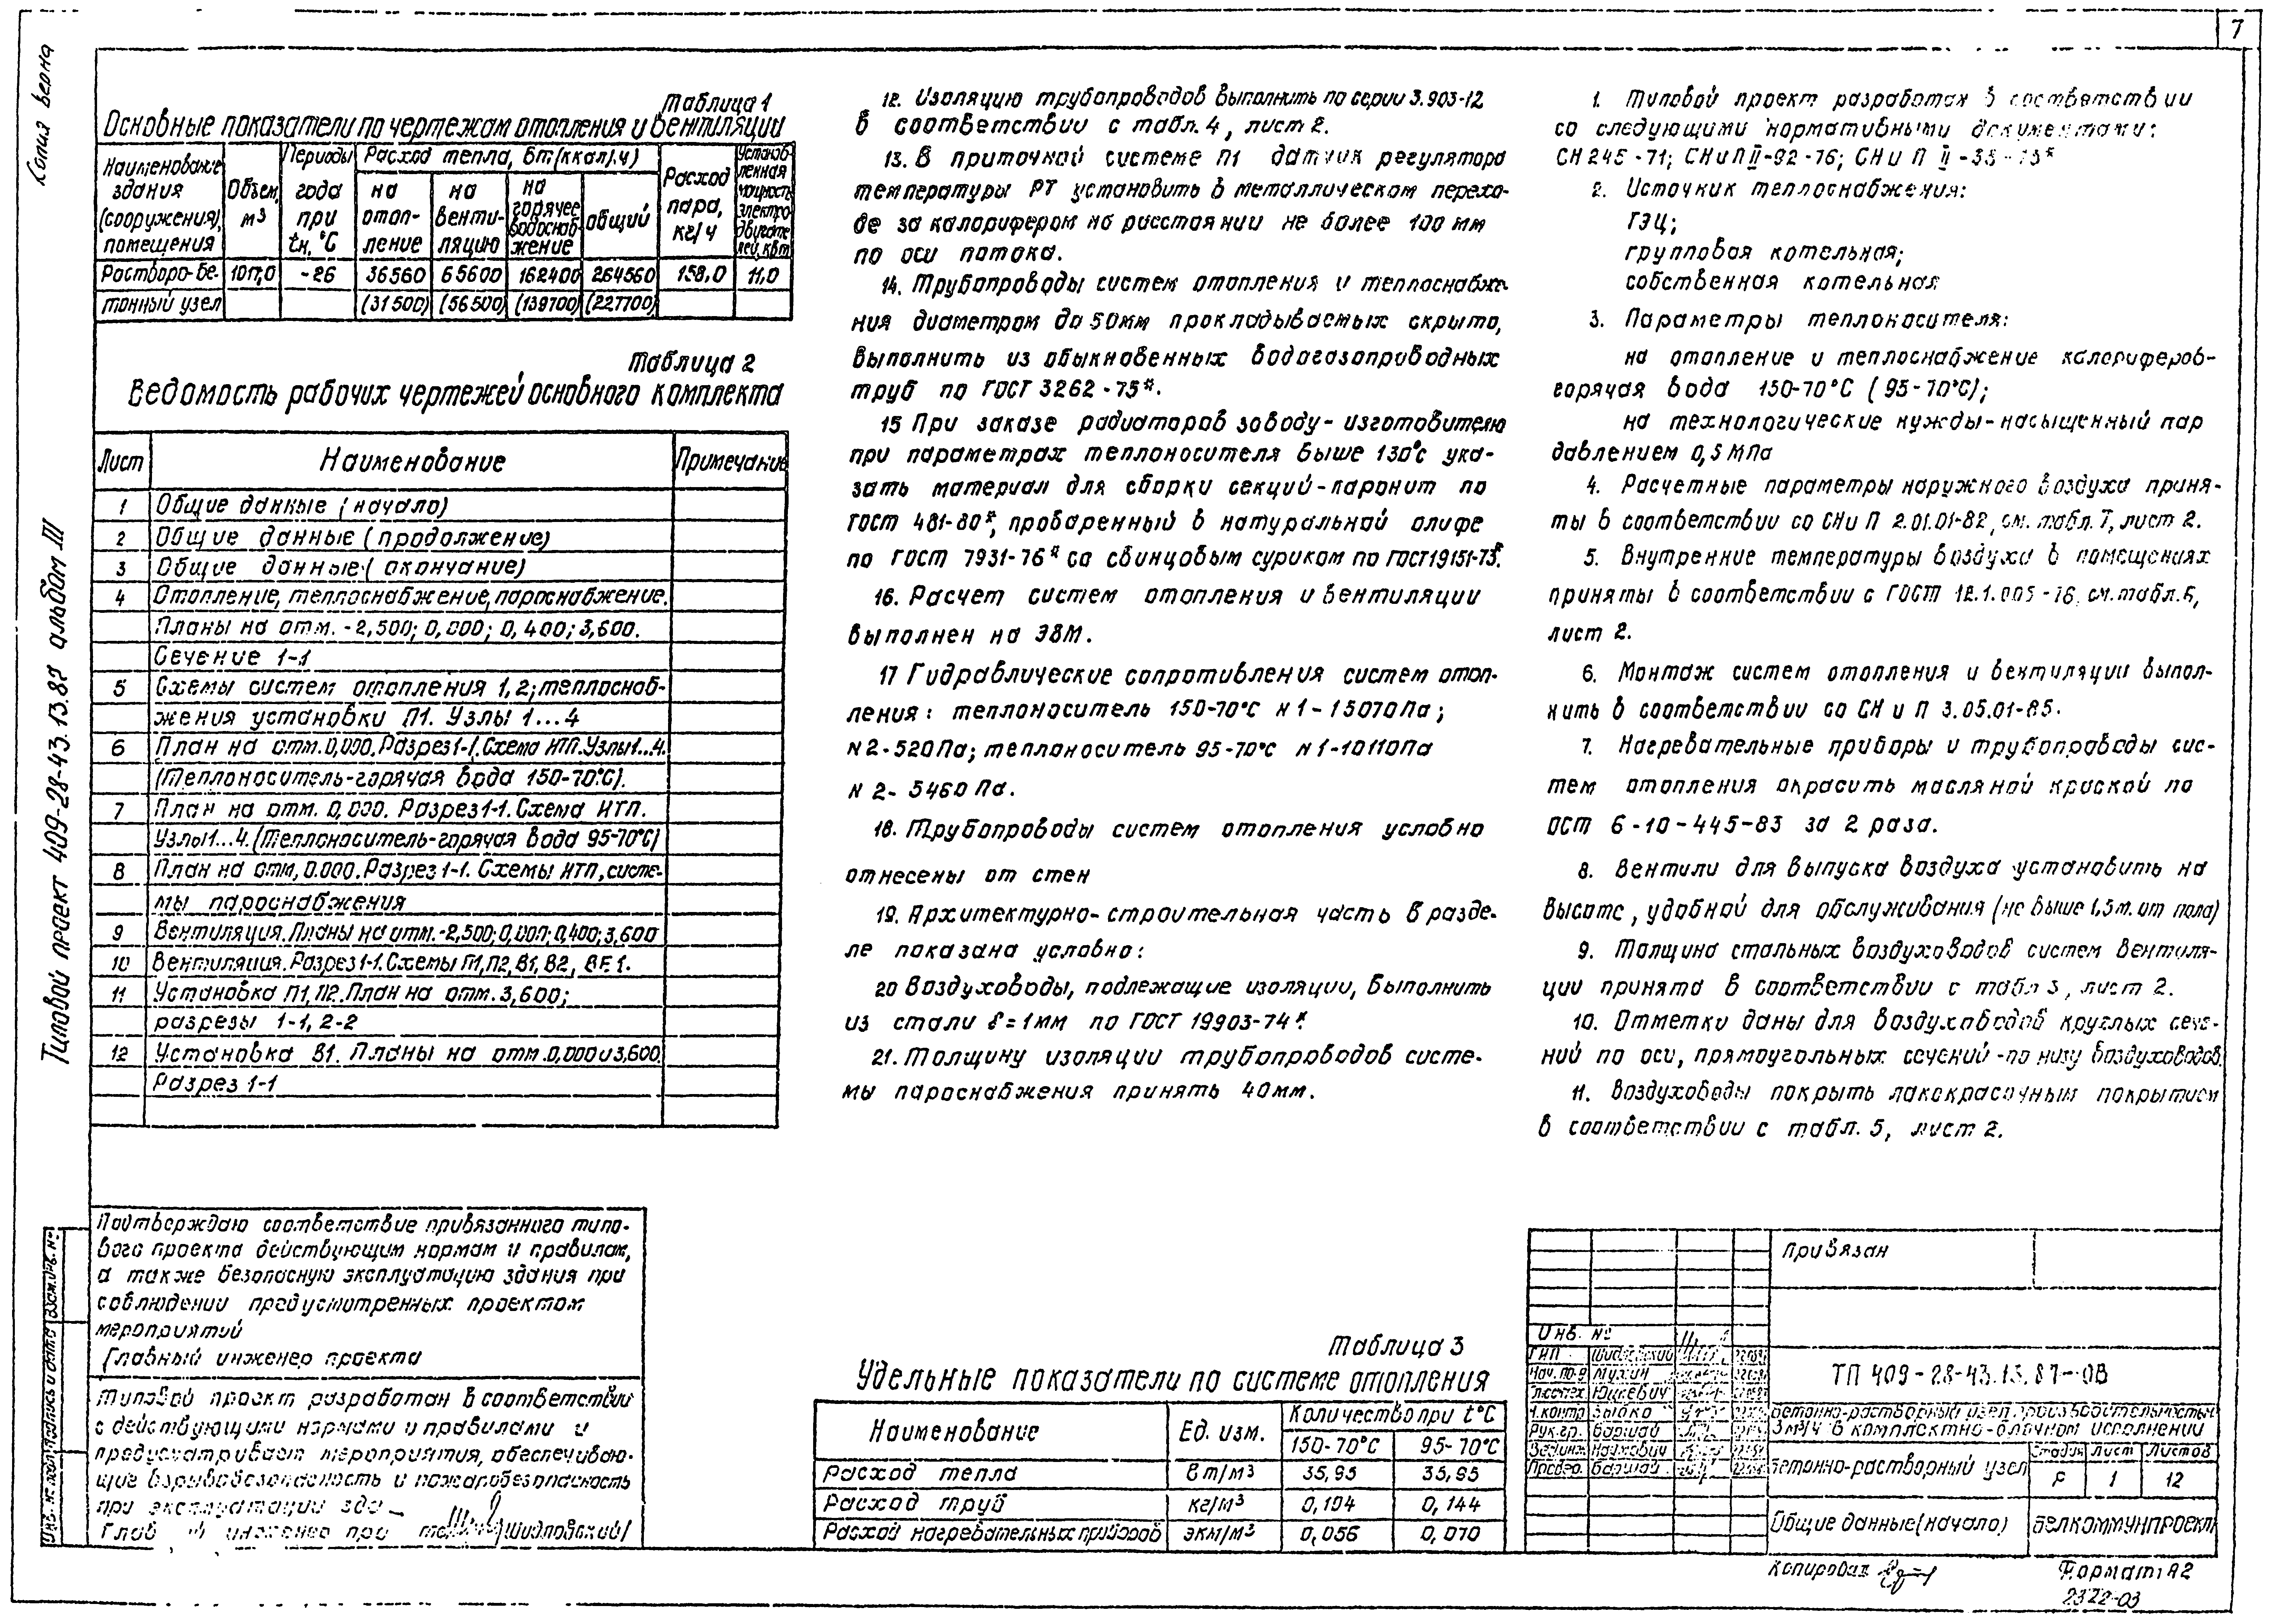 7
Копия верна
Типовой проект 409-28-43.13.87 альбом III
Таблица 1
Основные показатели по чертежам отопления и вентиляции
Наименование здания (сооружения), помещения
Объем, м³
Периоды года при tн, °С
Расход тепла, Вт (ккал/ч)
на отоп-ление
на венти-ляцию
на горячее водоснаб-жение
общий
Расход пара, кг/ч
Установ-ленная мощность электро-двигате-лей, кВт
Растворо-бе- 1017,0 -26 36560 65600 162400 264560 158,0 11,0
тонный узел (31500) (56500) (139700) (227700)
Таблица 2
Ведомость рабочих чертежей основного комплекта
Лист Наименование Примечание
1 Общие данные (начало)
2 Общие данные (продолжение)
3 Общие данные (окончание)
4 Отопление, теплоснабжение, пароснабжение.
Планы на отм. -2,500; 0,000; 0,400; 3,600.
Сечение 1-1
5 Схемы систем отопления 1,2; теплоснаб-
жения установки П1. Узлы 1...4
6 План на отм. 0,000. Разрез 1-1. Схема ИТП. Узлы 1...4.
(Теплоноситель-горячая вода 150-70°С).
7 План на отм. 0,000. Разрез 1-1. Схема ИТП.
Узлы 1...4. (Теплоноситель-горячая вода 95-70°С)
8 План на отм, 0.000. Разрез 1-1. Схемы ИТП, систе-
мы пароснабжения
9 Вентиляция. Планы на отм. -2,500; 0,000; 0,400; 3,600
10 Вентиляция. Разрез 1-1. Схемы П1, П2, В1, В2, ВЕ1.
11 Установка П1, П2. План на отм. 3,600;
разрезы 1-1, 2-2
12 Установка В1. Планы на отм. 0,000 и 3,600.
Разрез 1-1
Подтверждаю соответствие привязанного типо-
вого проекта действующим нормам и правилам,
а также безопасную эксплуатацию здания при
соблюдении предусмотренных проектом
мероприятий
Главный инженер проекта
Типовой проект разработан в соответствии
с действующими нормами и правилами и
предусматривает мероприятия, обеспечиваю-
щие взрывобезопасность и пожаробезопасность
при эксплуатации зда
инженер про /Шидловский/
12. Изоляцию трубопроводов выполнить по серии 3.903-12
в соответствии с табл. 4, лист 2.
13. В приточной системе П1 датчик регулятора
температуры РТ установить в металлическом перехо-
де за калорифером на расстоянии не более 100 мм
по оси потока.
14. Трубопроводы систем отопления и теплоснабже-
ния диаметром до 50мм прокладываемых скрыто,
выполнить из обыкновенных водогазопроводных
труб по ГОСТ 3262-75*.
15 При заказе радиаторов заводу-изготовителю
при параметрах теплоносителя выше 130°с ука-
зать материал для сборки секций-паронит по
ГОСТ 481-80*, проваренный в натуральной олифе
по ГОСТ 7931-76* со свинцовым суриком по ГОСТ19151-73*.
16. Расчет систем отопления и вентиляции
выполнен на ЭВМ.
17 Гидравлические сопротивления систем отоп-
ления: теплоноситель 150-70°С N1-15070Па;
N2-520Па; теплоноситель 95-70°С N1-10110Па
N2-5460Па.
18. Трубопроводы систем отопления условно
отнесены от стен
19. Архитектурно-строительная часть в разде-
ле показана условно:
20 Воздуховоды, подлежащие изоляции, выполнить
из стали δ=1мм по ГОСТ 19903-74*.
21. Толщину изоляции трубопроводов систе-
мы пароснабжения принять 40мм.
Таблица 3
Удельные показатели по системе отопления
Наименование Ед. изм. Количество при t°С
150-70°С 95-70°С
Расход тепла Вт/м³ 35,95 35,95
Расход труб кг/м³ 0,104 0,144
Расход нагревательных приборов экм/м³ 0,056 0,070
1. Типовой проект разработан в соответствии
со следующими нормативными документами:
СН 245-71; СНиП II-92-76; СНиП II-33-75*
2. Источник теплоснабжения:
ТЭЦ;
групповая котельная;
собственная котельная
3. Параметры теплоносителя:
на отопление и теплоснабжение калориферов-
горячая вода 150-70°С (95-70°С);
на технологические нужды-насыщенный пар
давлением 0,5 МПа
4. Расчетные параметры наружного воздуха приня-
ты в соответствии со СНиП 2.01.01-82, см. табл. 7, лист 2.
5. Внутренние температуры воздуха в помещениях
приняты в соответствии с ГОСТ 12.1.005-76, см. табл. 6,
лист 2.
6. Монтаж систем отопления и вентиляции выпол-
нить в соответствии со СНиП 3.05.01-85.
7. Нагревательные приборы и трубопроводы сис-
тем отопления окрасить масляной краской по
ОСТ 6-10-445-83 за 2 раза.
8. Вентили для выпуска воздуха установить на
высоте, удобной для обслуживания (не выше 1,5м. от пола)
9. Толщина стальных воздуховодов систем вентиля-
ции принята в соответствии с табл 3, лист 2.
10. Отметки даны для воздуховодов круглых сече-
ний по оси, прямоугольных сечений-по низу воздуховодов.
11. Воздуховоды покрыть лакокрасочным покрытием
в соответствии с табл. 5, лист 2.
Привязан
Инв. №
ГИП
Нач. по-9 Мухин
Гл.спец. Юшкевич
Н.контр Зыбко
Рук.гр. Баршай
Вед.инж. Наумович
Провер. Баршай
ТП 409-28-43.13.87-ОВ
Бетонно-растворный узел производительностью
3м³/ч в комплектно-блочном исполнении
Бетонно-растворный узел
Стадия Лист Листов
Р 1 12
Общие данные (начало)
БЕЛКОММУНПРОЕКТ
Инв. № подл. Подпись и дата Взам. инв. №
Копировал
Формат А2
2322-03